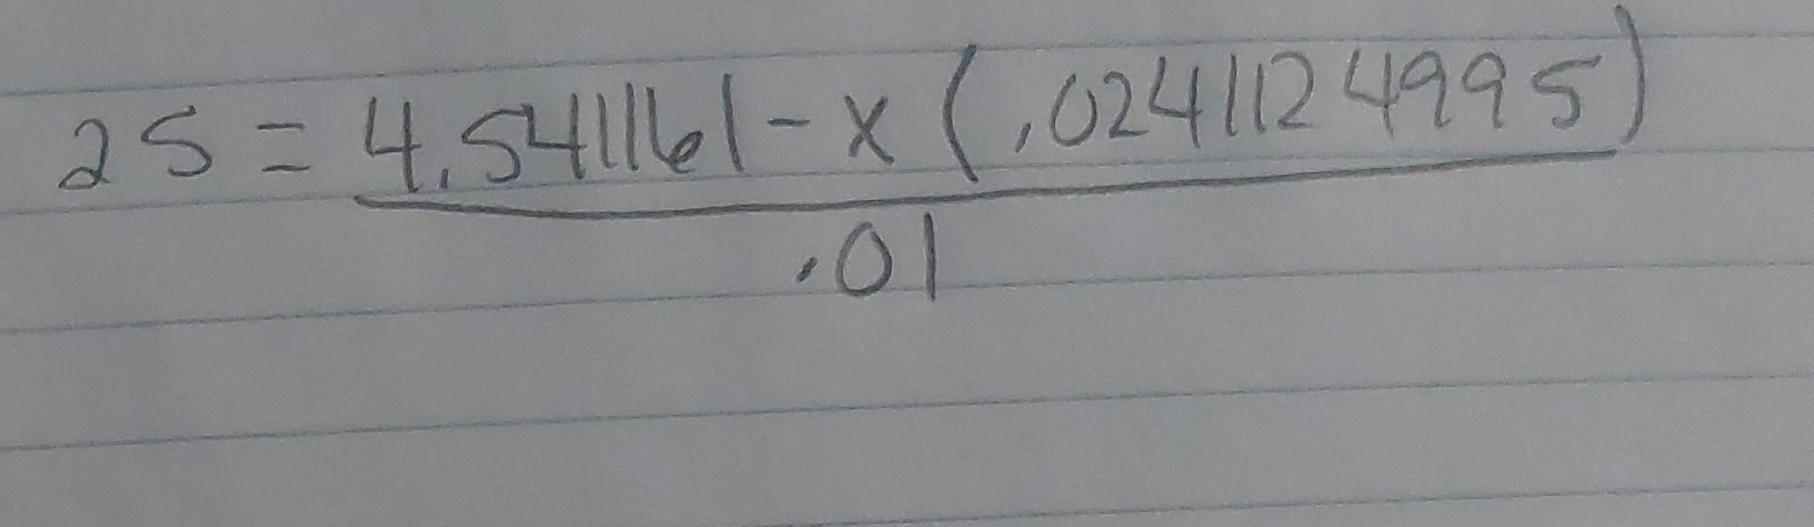 25 = 4.541161 - x (.02411124995)
.01